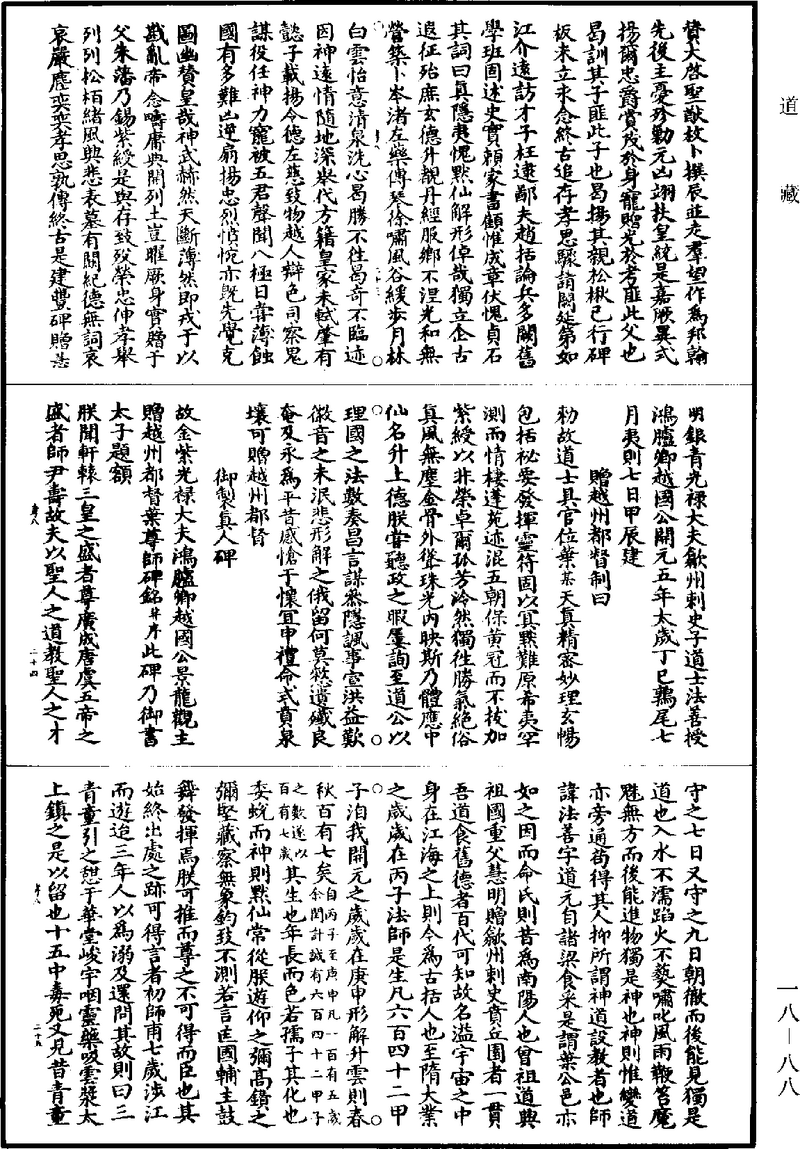 道藏
贊大啓聖猷故卜撰辰並走羣望作為邦翰
先後主憂殄勦元凶翊扶皇統是嘉厥異式
揚爾忠爵賞茂於身寵贈光於考匪此父也
曷訓其子匪此子也曷揚其親松楸已行碑
板未立永念終古追存孝思驟請闕筵第如
江介遠訪才子枉逮鄙夫趙括論兵多闕舊
學班固述史實賴家書顧惟成章伏愧貞石
其詞曰真隱夷愧默仙解形倬哉獨立企古
遐征殆庶玄德升覲丹經服鄉不涅光和無
營築卜岑渚左藥傳琴徐嘯風谷緩步月林
白雲怡意清泉洗心曷勝不往曷奇不臨迹
因神遠情隨地深柴代方籍皇家未軾肇有
懿子載揚令德左慈致物越人辯色司察鬼
謀役任神力寵被五君聲聞八極日嘗薄蝕
國有多難凶逆扇揚忠烈憤惋亦既先覺克
圖幽贊皇哉神武赫然天斷薄然即戎于以
戡亂帝念疇庸典開列土豈唯厥身實贈于
父朱藩乃錫紫綬是與存致歿榮忠仲孝舉
列列松栢緒風與悲表墓有闕紀德無詞哀
哀嚴塵奕奕孝思孰傳終古是建豐碑贈告
明銀青光祿大夫歙州刺史子道士法善授
鴻臚卿越國公開元五年太歲丁巳鶉尾七
月夷則七日甲辰建
贈越州都督制曰
勑故道士具官位葉某天真精密妙理玄暢
包括祕要發揮靈符固以冥默難原希夷罕
測而情棲蓬苑迹混五朝保黃冠而不拔加
紫綬以非榮卓爾孤芳泠然獨往勝氣絕俗
真風無塵金骨外聳珠光內映斯乃體應中
仙名升上德朕嘗聽政之暇屢詢至道公以
理國之法數奏昌言謀參隱諷事宣洪益歎
徽音之未泯悲形解之俄留何莫慭遺殲良
奄及永為平昔感愴于懷宜申禮命式賁泉
壤可贈越州都督
御製真人碑
故金紫光祿大夫鴻臚卿越國公景龍觀主
贈越州都督葉尊師碑銘并序此碑乃御書
太子題額
朕聞軒轅三皇之盛者尊廣成唐虞五帝之
盛者師尹壽故夫以聖人之道教聖人之才
二十四
守之七日又守之九日朝徹而後能見獨是
道也入水不濡蹈火不爇嘯叱風雨鞭笞魔
魅無方而後能進物獨是神也神則惟變道
亦旁通苟得其人抑所謂神道設教者也師
諱法善字道元自諸梁食采是謂葉公邑亦
如之因而命氏則昔為南陽人也曾祖道興
祖國重父慧明贈歙州刺史賁丘園者一貫
吾道食舊德者百代可知故名溢宇宙之中
身在江海之上則今為古括人也至隋大業
之歲歲在丙子法師是生凡六百四十二甲
子洎我開元之歲歲在庚申形解升雲則春
秋百有七矣自丙子至庚申凡一百有五歲余閏計誠有六百四十二甲子之數遂以百有七歲其生也年長而色若孺子其化也
委蛻而神則默仙常從朕遊仰之彌高鑽之
彌堅藏察無象鈞致不測若言匡國輔主鼓
舞發揮焉朕可推而尊之不可得而臣也其
始終出處之跡可得言者初師甫七歲涉江
而遊迨三年人以為溺及還問其故則曰三
青童引之憇于華堂峻宇咽靈藥吸雲漿太
上鎮之是以留也十五中毒死又見昔青童
二十五
一八—八八